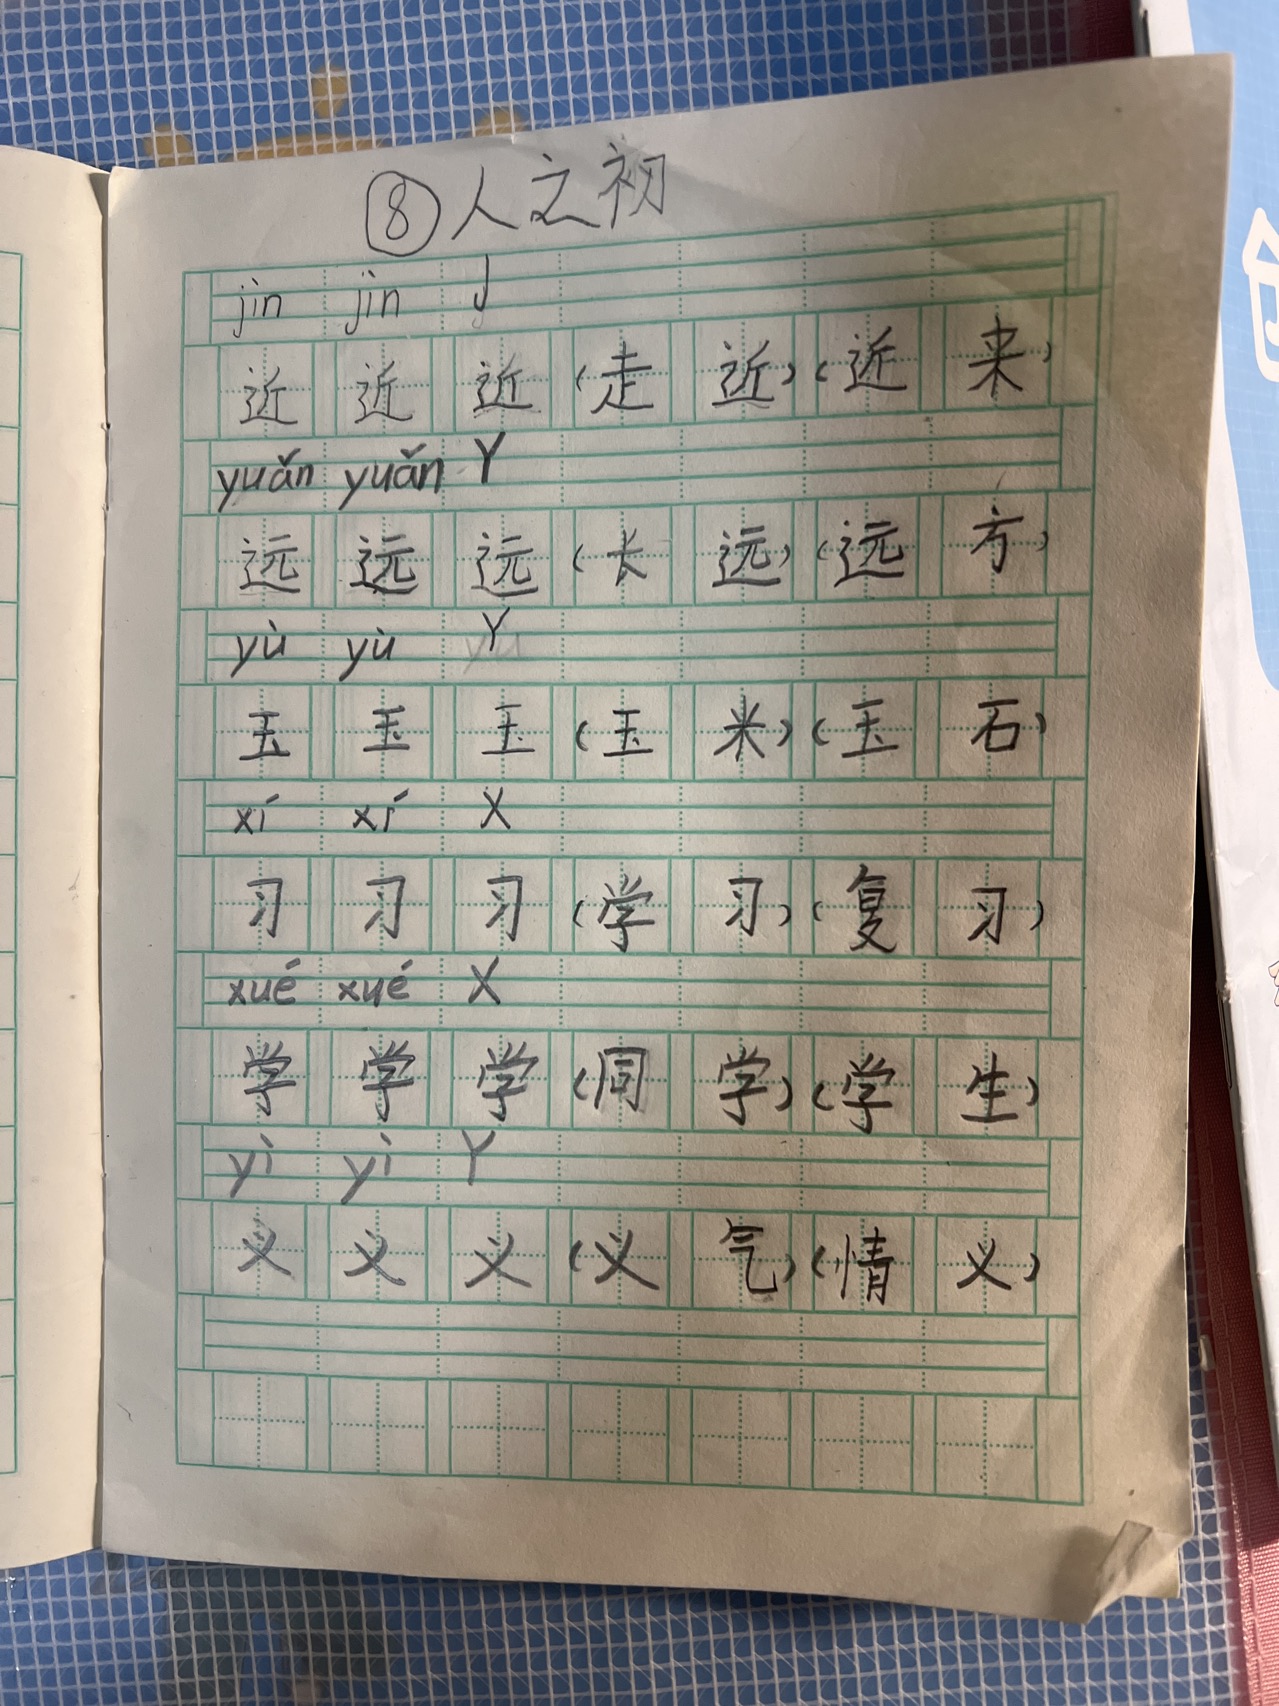 ⑧人之初
jìn jìn J
近 近 近 (走 近) (近 来)
yuǎn yuǎn Y
远 远 远 (长 远) (远 方)
yù yù Y
玉 玉 玉 (玉 米) (玉 石)
xí xí X
习 习 习 (学 习) (复 习)
xué xué X
学 学 学 (同 学) (学 生)
yì yì Y
义 义 义 (义 气) (情 义)